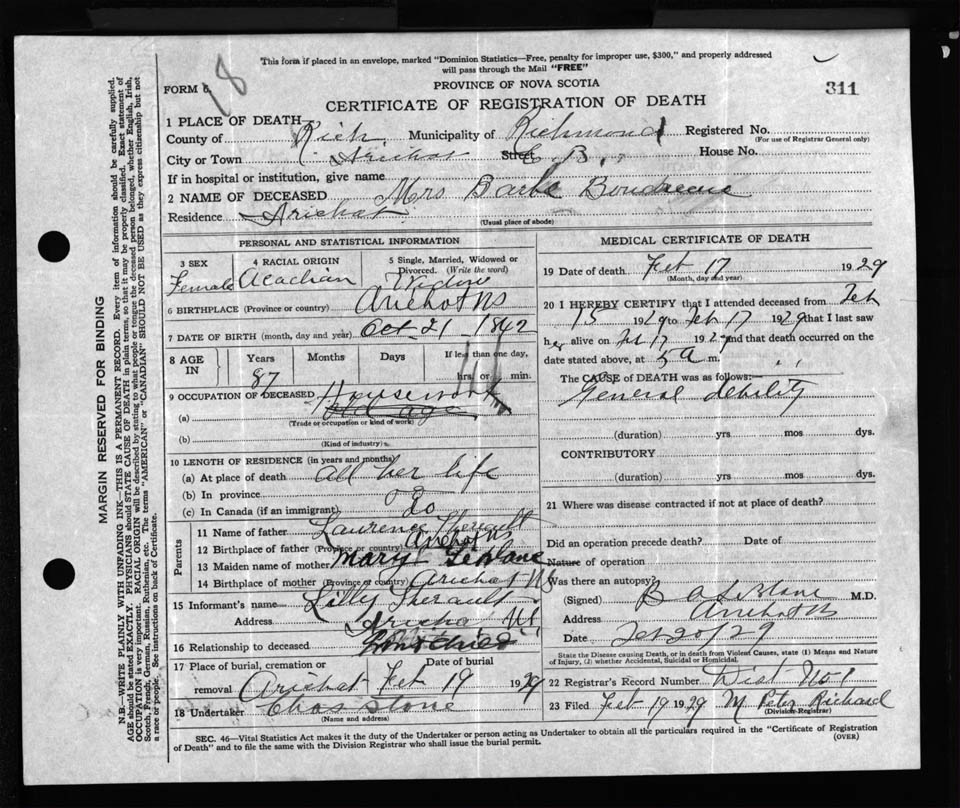 This form if placed in an envelope, marked "Dominion Statistics—Free, penalty for improper use, $300," and properly addressed
will pass through the Mail "FREE"
FORM 6 18
PROVINCE OF NOVA SCOTIA
311
CERTIFICATE OF REGISTRATION OF DEATH
1 PLACE OF DEATH—
County of Rich. Municipality of Richmond Registered No.
(For use of Registrar General only)
City or Town Arichat Street C. B. House No.
If in hospital or institution, give name
2 NAME OF DECEASED Mrs Barbe
Residence Arichat
(Usual place of abode)
PERSONAL AND STATISTICAL INFORMATION
3 SEX Female
4 RACIAL ORIGIN Acadian
5 Single, Married, Widowed or Divorced. (Write the word) Widow
6 BIRTHPLACE (Province or country) Arichat NS
7 DATE OF BIRTH (month, day and year) Oct 21 1842
8 AGE IN Years 87 Months Days If less than one day, hrs. or min.
9 OCCUPATION OF DECEASED Housework
(a) Old age
(Trade or occupation or kind of work)
(b)
(Kind of industry)
10 LENGTH OF RESIDENCE (in years and months)
(a) At place of death all her life
(b) In province
(c) In Canada (if an immigrant) Do
Parents
11 Name of father Laurence Therault
12 Birthplace of father (Province or country) Arichat NS
13 Maiden name of mother Mary LeBlanc
14 Birthplace of mother (Province or country) Arichat NS
15 Informant's name Lilly Therault
Address Arichat, NS
16 Relationship to deceased
17 Place of burial, cremation or removal Arichat Date of burial Feb 19 1929
18 Undertaker Chas Stone
(Name and address)
MEDICAL CERTIFICATE OF DEATH
19 Date of death Feb 17 1929
(Month, day and year)
20 I HEREBY CERTIFY that I attended deceased from Feb
15 1929 to Feb 17 1929 that I last saw
her alive on Feb 17 1929 and that death occurred on the
date stated above, at 5 a m.
The CAUSE of DEATH was as follows:—
General debility
(duration) yrs mos dys.
CONTRIBUTORY
(duration) yrs mos dys.
21 Where was disease contracted if not at place of death?
Did an operation precede death? Date of
Nature of operation
Was there an autopsy?
(Signed) B A LeBlanc M.D.
Address Arichat NS
Date Feb 20/29
State the Disease causing Death, or in death from Violent Causes, state (1) Means and Nature
of Injury, (2) whether Accidental, Suicidal or Homicidal.
22 Registrar's Record Number Dist No 1
23 Filed Feb 19 1929 M Peter Richard
(Division Registrar)
SEC. 46—Vital Statistics Act makes it the duty of the Undertaker or person acting as Undertaker to obtain all the particulars required in the "Certificate of Registration
of Death" and to file the same with the Division Registrar who shall issue the burial permit.
(OVER)
MARGIN RESERVED FOR BINDING
N.B.—WRITE PLAINLY WITH UNFADING INK—THIS IS A PERMANENT RECORD. Every item of information should be carefully supplied.
AGE should be stated EXACTLY. PHYSICIANS should STATE CAUSE OF DEATH in plain terms, so that it may be properly classified. Exact statement of
OCCUPATION is very important. RACIAL ORIGIN will be described by stating to what people or tongue the deceased person belonged, whether English, Irish,
Scotch, French, German, Russian, Ruthenian, etc. The terms "AMERICAN" or "CANADIAN" SHOULD NOT BE USED as they express citizenship but not
a race or people. See instructions on back of Certificate.